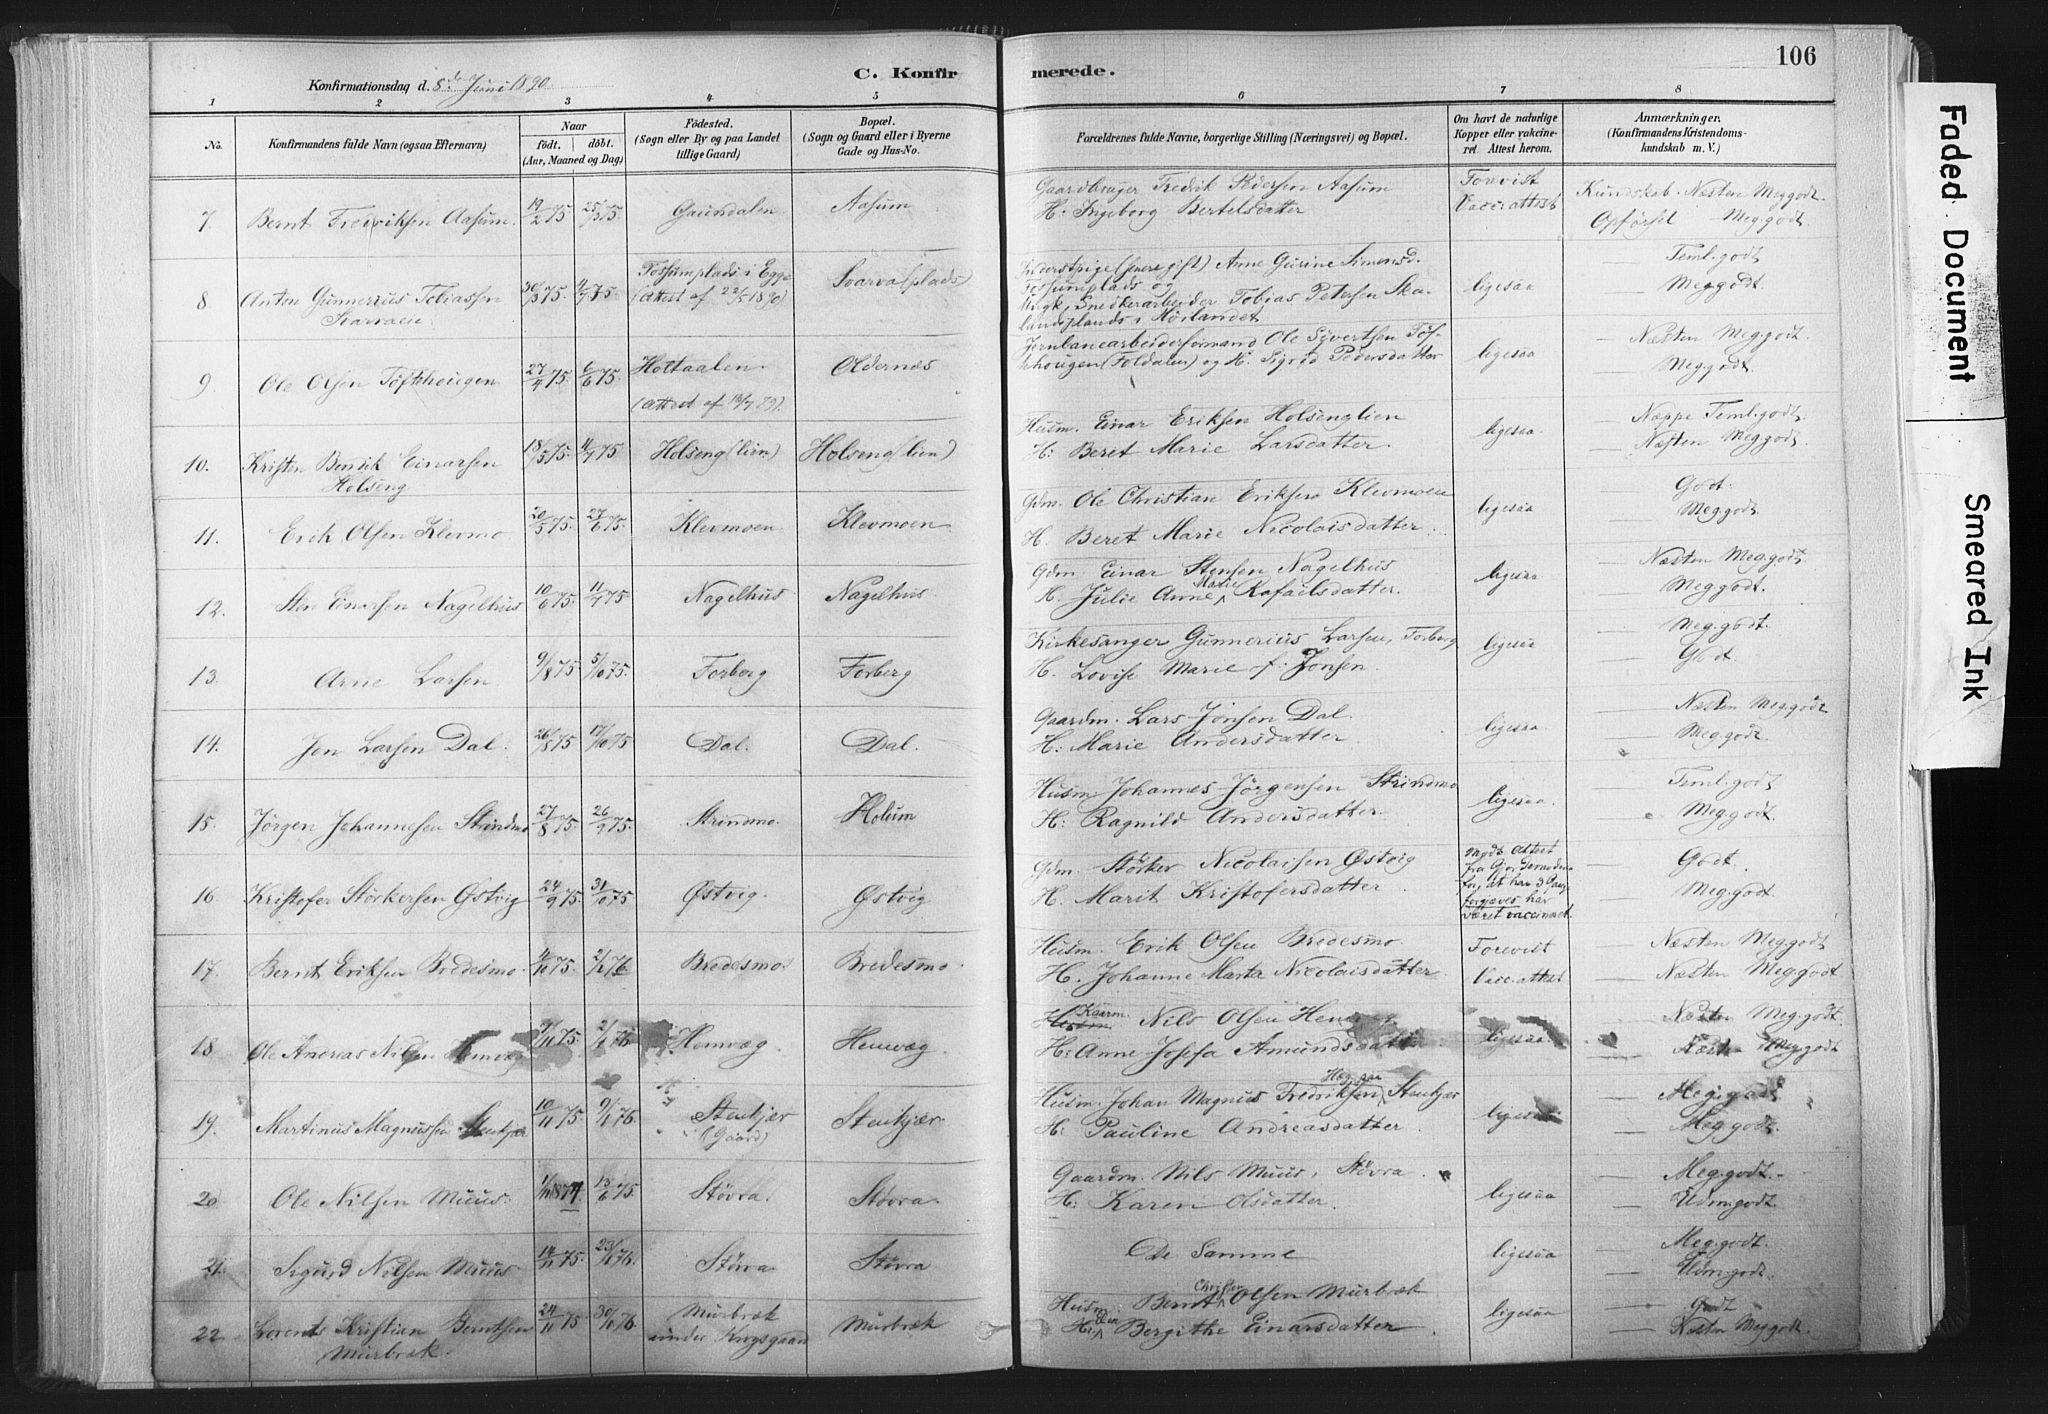 106
C. Konfir merede.
Konfirmationsdag d. 8de Juni 1890
1 2 3 4 5 6 7 8
No.
Konfirmandens fulde Navn (ogsaa Efternavn)
Naar
født. døbt.
(Aar, Maaned og Dag)
Fødested.
(Sogn eller By og paa Landet
tillige Gaard)
Bopæl.
(Sogn og Gaard eller i Byerne
Gade og Hus-No.
Forældrenes fulde Navne, borgerlige Stilling (Næringsvei) og Bopæl.
Om havt de naturlige
Kopper eller vakcine-
ret. Attest herom.
Anmærkninger.
(Konfirmandens Kristendoms-
kundskab m. V.)
7. Bernt Fredriksen Aasum. 19/2 75 25/3 75 Gaundalen Aasum
Gaardbruger Fredrik Pedersen Aasum
H. Ingeborg Bertelsdatter
Forevist
Vacc: attest
Kundskab. Næsten Meg godt.
Opførsel — Meg. godt.
8 Anton Gunnerius Tobiassen
Svarvaen
30/3 75. 4/7 75. Fossumplads i Egge
(attest af 22/5 1890)
Svarva(plads)
Inderstpige (senere gift) Anne Gurine Simonsd.
Fossumplads og
Ungk, Snedkerarbeider Tobias Petersen Ska-
landsplands i Høilandet
ligesaa
— Teml. godt
— Meg godt.
9 Ole Olsen Tofthougen 27/4 75. 6/6 75. Holtaalen
(attest af 16/7 89).
Oldernæs
Jernbanearbeiderformand Ole Syvertsen Tof-
thougen (Foldalen) og H. Sigrid Pedersdatter
ligesaa
— Næsten Meg. godt.
— Meg. godt.
10. Kristen Bendik Einarsen
Holseng
18/5 75. 4/7 75 Holseng(lien) Holseng(lien)
Husm. Einar Eriksen Holsenglien
H: Beret Marie Larsdatter.
ligesaa.
— Næppe Teml. godt.
— Næsten Meg godt.
11. Erik Olsen Klevmo 20/5 75. 27/6 75. Klevmoen Klevmoen
Gdm. Ole Christian Eriksen Klevmoen
H. Beret Marie Nicolaisdatter.
ligesaa
— Godt.
— Meg. godt.
12. Sten Einarsen Nagelhus 10/6 75. 11/7 75 Nagelhus Nagelhus.
Gdm. Einar Stensen Nagelhus
Marie
H. Julie Anne Rafaelsdatter.
ligesaa
— Næsten Meg. godt.
— Meg godt.
13. Arne Larsen 9/8 75. 5/10 75. Forberg Forberg
Kirkesanger Gunnerius Larsen, Forberg
H. Lovise Marie f: Jonsen.
ligesaa
— Meg. godt.
— Godt.
14. Jon Larsen Dal. 26/8 75 17/10 75 Dal. Dal.
Gaardm. Lars Jonsen Dal.
H: Marie Andersdatter.
ligesaa.
— Næsten Meg. godt.
— Meg. godt.
15. Jørgen Johannesen Strindmo 27/8 75. 26/9 75. Strindmo. Holum
Husm Johannes Jørgensen Strindmo
H: Ragnild Andersdatter.
ligesaa.
— Teml. godt
— Meg. godt.
16 Kristofer Størkersen Østvig 24/9 75. 31/10 75 Østvig. Østvig
Gdm Størker Nicolaisen Østvig
H. Marit Kristofersdatter.
forgjæves har
været vaccineret.
— Godt.
— Meg. godt.
17. Bernt Eriksen Bredesmo. 4/10 75. 2/1 76 Bredesmo. Bredesmo.
Husm. Erik Olsen Bredesmo.
H. Johanne Marta Nicolaisdatter.
Forevist
Vacc. Attest
— Næsten Meg. godt
— Næsten Meg. godt.
18 Ole Andreas Nilsen Hemvæg 7/11 75. 2/1 76 Hemvæg. Hemvæg.
Kaarm.
Husm. Nils Olsen
H: Anne Josefa Amundsdatter
ligesaa.
— Næsten Meg. godt.
— Meg. godt
19. Martinus Magnussen Stenkjær 10/11 75 9/1 76. Stenkjær
(Gaard)
Stenkjær.
Husm. Johan Magnus Fredriksen Stenkjær
H: Pauline Andreasdatter.
ligesaa.
— Meg. godt
— Meg. godt.
20. Ole Nilsen Muus. 1874 13/6 75. Støvra. Støvra.
Gaardm. Nils Muus, Støvra.
H: Karen Olsdatter.
ligesaa
— Meg. godt.
— Udm. godt.
21. Sigurd Nilsen Muus 14/11 75. 23/1 76. Støvra Støvra
De Samme
ligesaa
— Meg. godt.
— Udm. godt.
22. Lorents Kristian Berntsen
Murbræk.
24/11 75 30/1 76. Murbræk
under
Murbræk
Christian
Husm. Bernt Olsen Murbræk
H: Bergithe Einarsdatter.
ligesaa
— Godt
— Næsten Meg. godt.
Faded Document
Smeared Ink